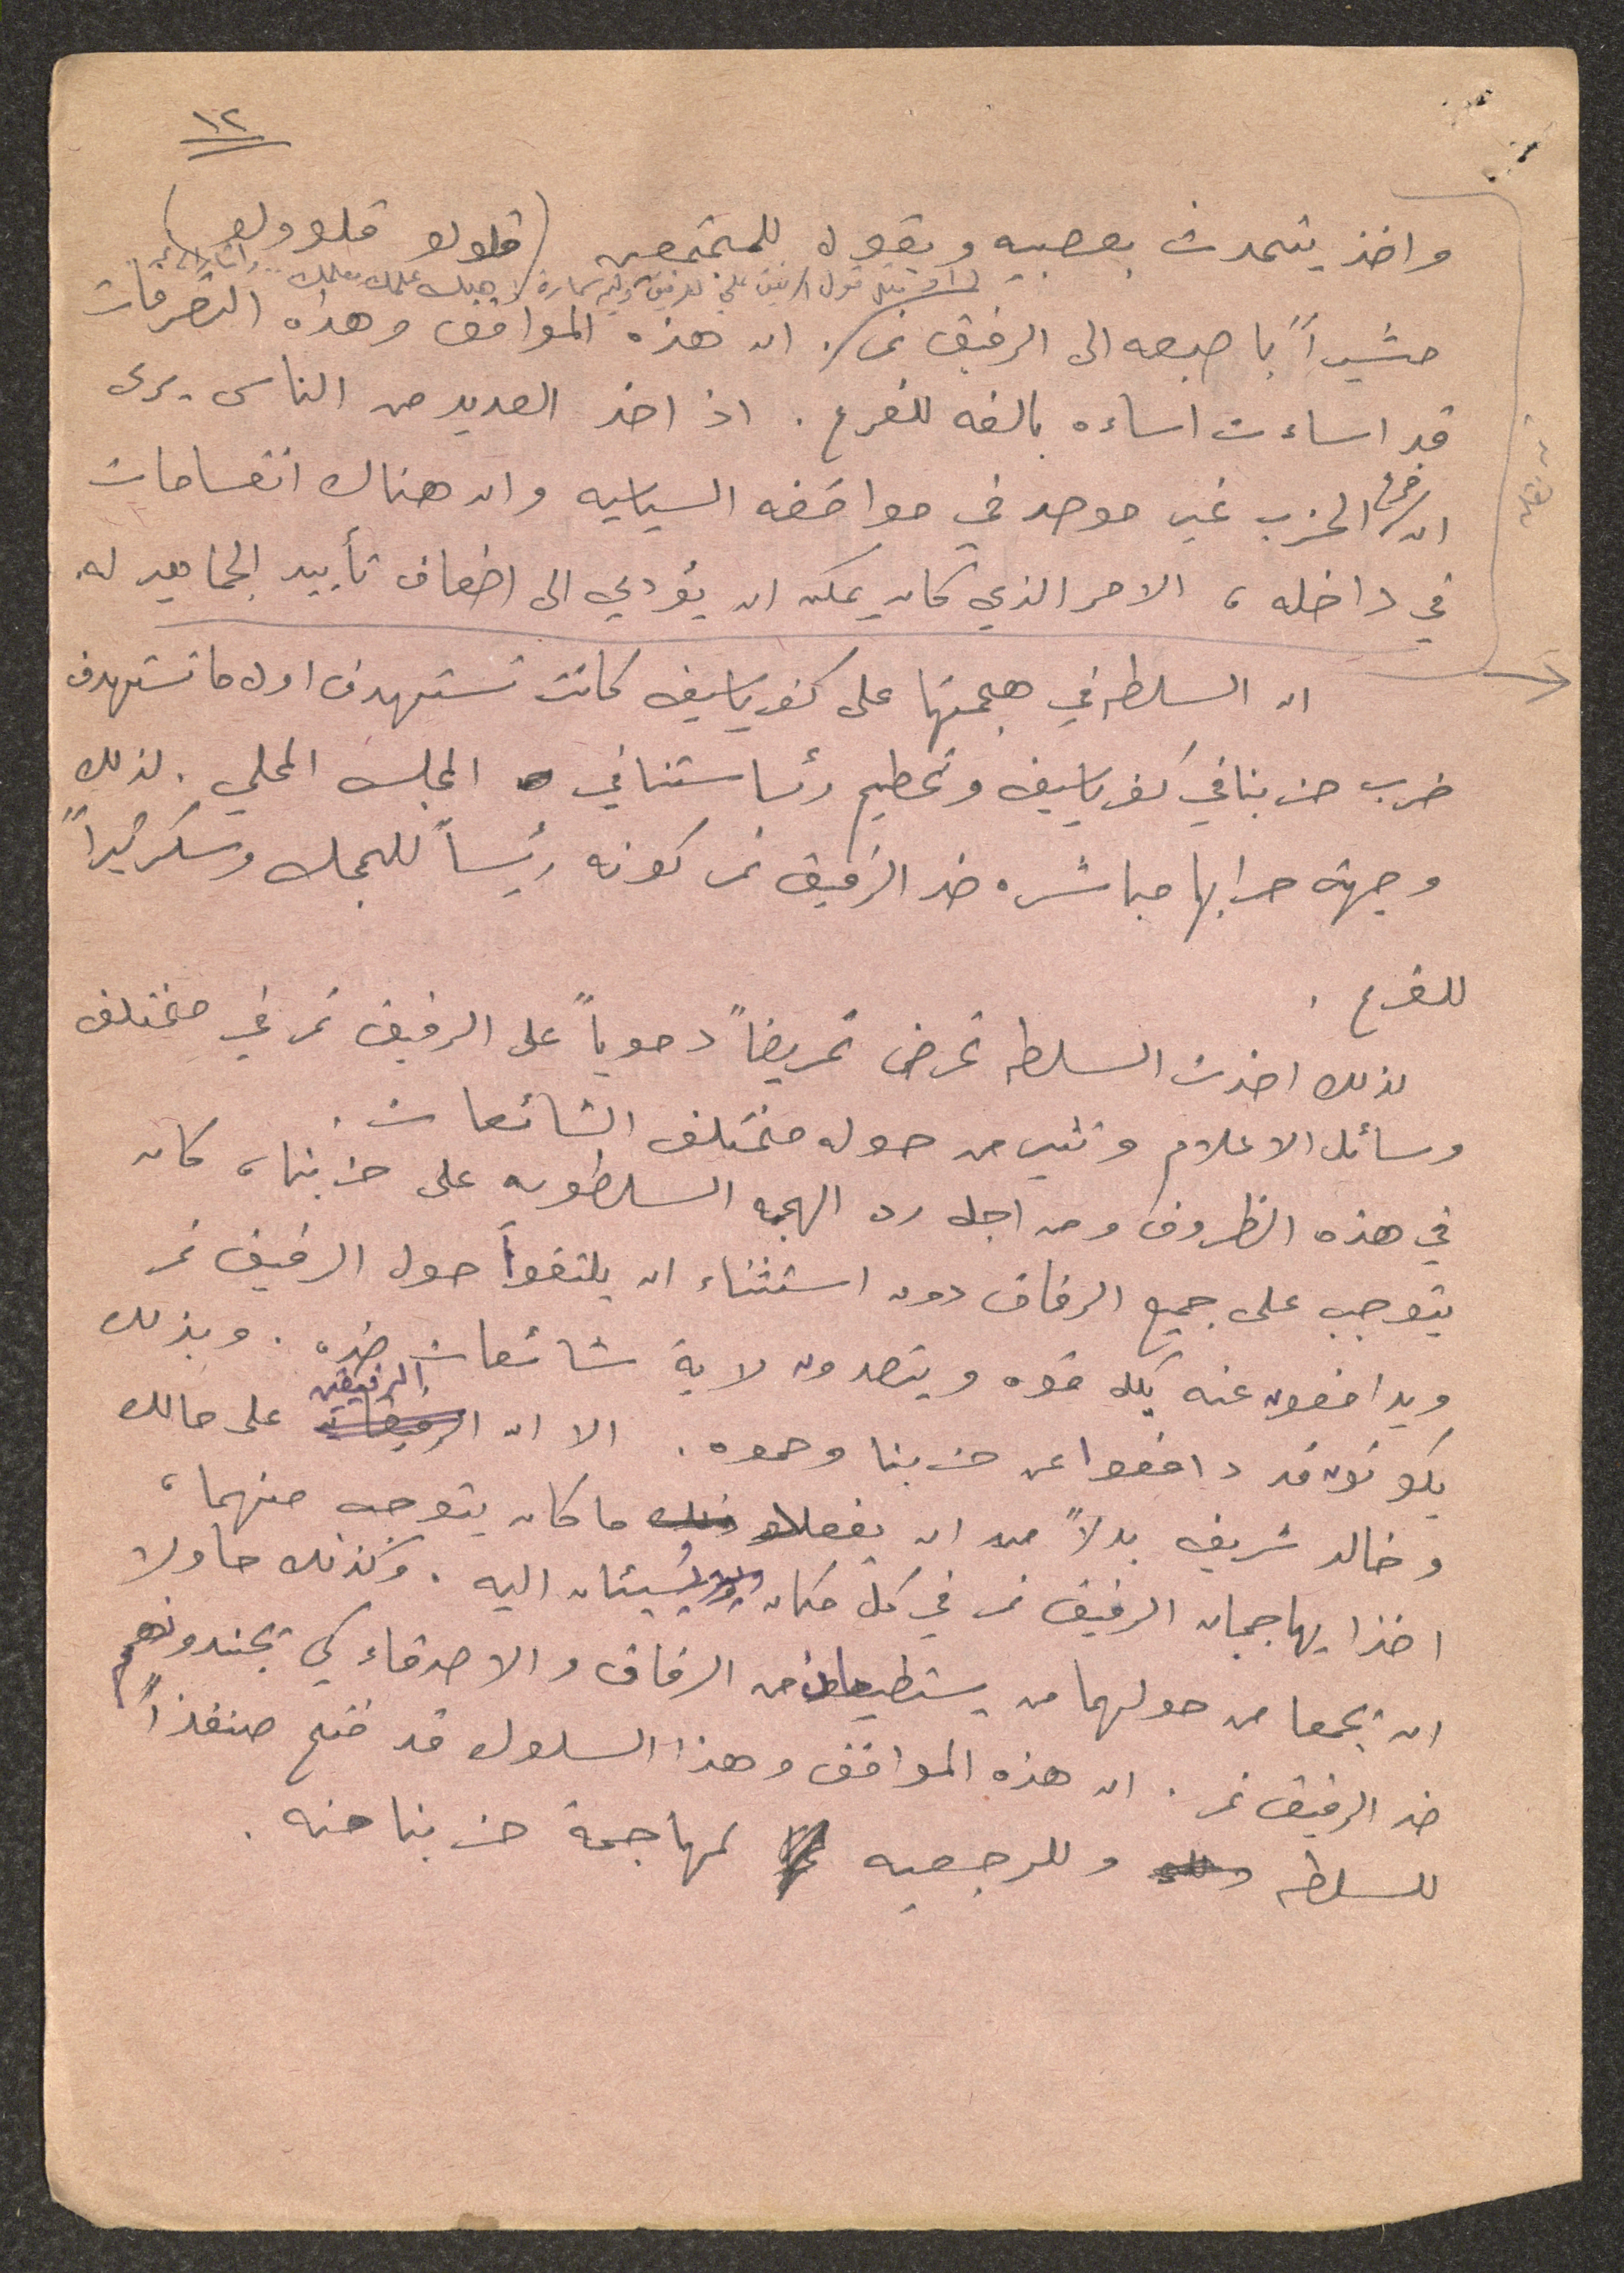 ١٢
واخذ يتحدث بعصبيه ويقول للمجتمعين (قلولو قلوولو)
او مثل قول الرفيق علي للرفيق
مشيراً باصبعه الى الرفيق نمر. ان هذه المواقف وهذه التصرفات
قد اساءت اساءه بالغه للفرع. اذ اخذ العديد من الناس يرى
ان فرع الحزب غير موحد في مواقفه السياسيه وان هناك انقسامات
في داخله، الامر الذي كان يمكن ان يؤدي الى اضعاف تأييد الجماهير له.
ان السلطه في هجمتها على كفرياسيف كانت تستهدف اول ما تستهدف
ضرب حزبنا في كفرياسيف وتحطيم رئاستنا في المجلس المحلي. لذلك
وجهة حرابها مباشره ضد الرفيق نمر كونه رئيساً للمجلس وسكرتيراً
للفرع.
لذلك اخذت السلطه تحرض تحريضاً دموياً على الرفيق نمر في مختلف
وسائل الاعلام وتثير من حوله مختلف الشائعات.
في هذه الظروف ومن اجل رد الهجمه السلطويه على حزبنا، كان
يتوجب على جميع الرفاق دون استثناء ان يلتفوا حول الرفيق نمر
ويدافعون عنه بكل قوه ويتصدون لاية شائعات ضده. وبذلك
يكونون قد دافعوا عن حزبنا وحموه. الا ان الرفيقين على مالك
وخالد شريف بدلاً من ان يفعلا ذلك ما كان يتوجب منهما،
اخذا يهاجمان الرفيق نمر في كل مكان ويُسيئان اليه. وكذلك حاولا
ان يجمعا من حولهما من يستطيعان من الرفاق والاصدقاء كي يجندونهم
ضد الرفيق نمر. ان هذه المواقف وهذا السلوك قد فتح منفذاً
للسلطه وللرجعيه لمهاجمة حزبنا منه.